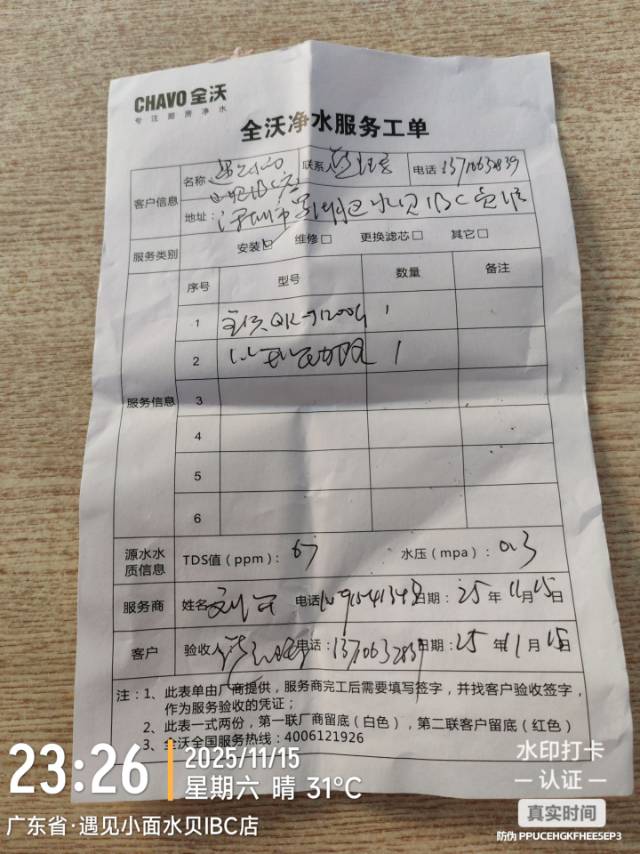 CHAVO 全沃
专注厨房净水
全沃净水服务工单
客户信息
名称: 遇见小面 水贝IBC店 联系人 电话 1371063839
地址: 深圳市罗湖区水贝IBC
服务类别 安装 维修 更换滤芯 其它
服务信息
序号 型号 数量 备注
1 1
2 1
3
4
5
6
源水水质信息 TDS值(ppm): 67 水压(mpa): 0.3
服务商 姓名 刘 电话 日期: 25年11月15日
客户 验收人 电话: 日期: 25年11月15日
注:1、此表单由厂商提供,服务商完工后需要填写签字,并找客户验收签字,
作为服务验收的凭证;
2、此表一式两份,第一联厂商留底(白色),第二联客户留底(红色)
3、全沃全国服务热线:4006121926
23:26
2025/11/15
星期六 晴 31℃
广东省·遇见小面水贝IBC店
水印打卡
认证
真实时间
防伪 PPUCEHGKFHEE5EP3